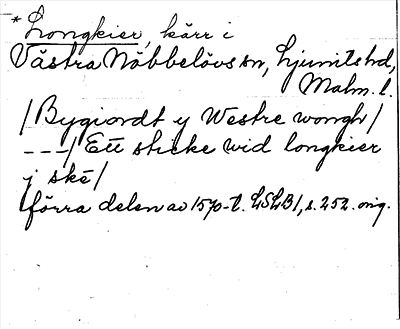 *Longkier, kärr i
Västra Nöbbelövs sn, Ljunits hd,
Malm. l.
/ Bygiordt y Westre wongh /
---/ Ett sticke wid longkier
j skë /
förra delen av 1570-t. LSLB1, s. 252. orig.